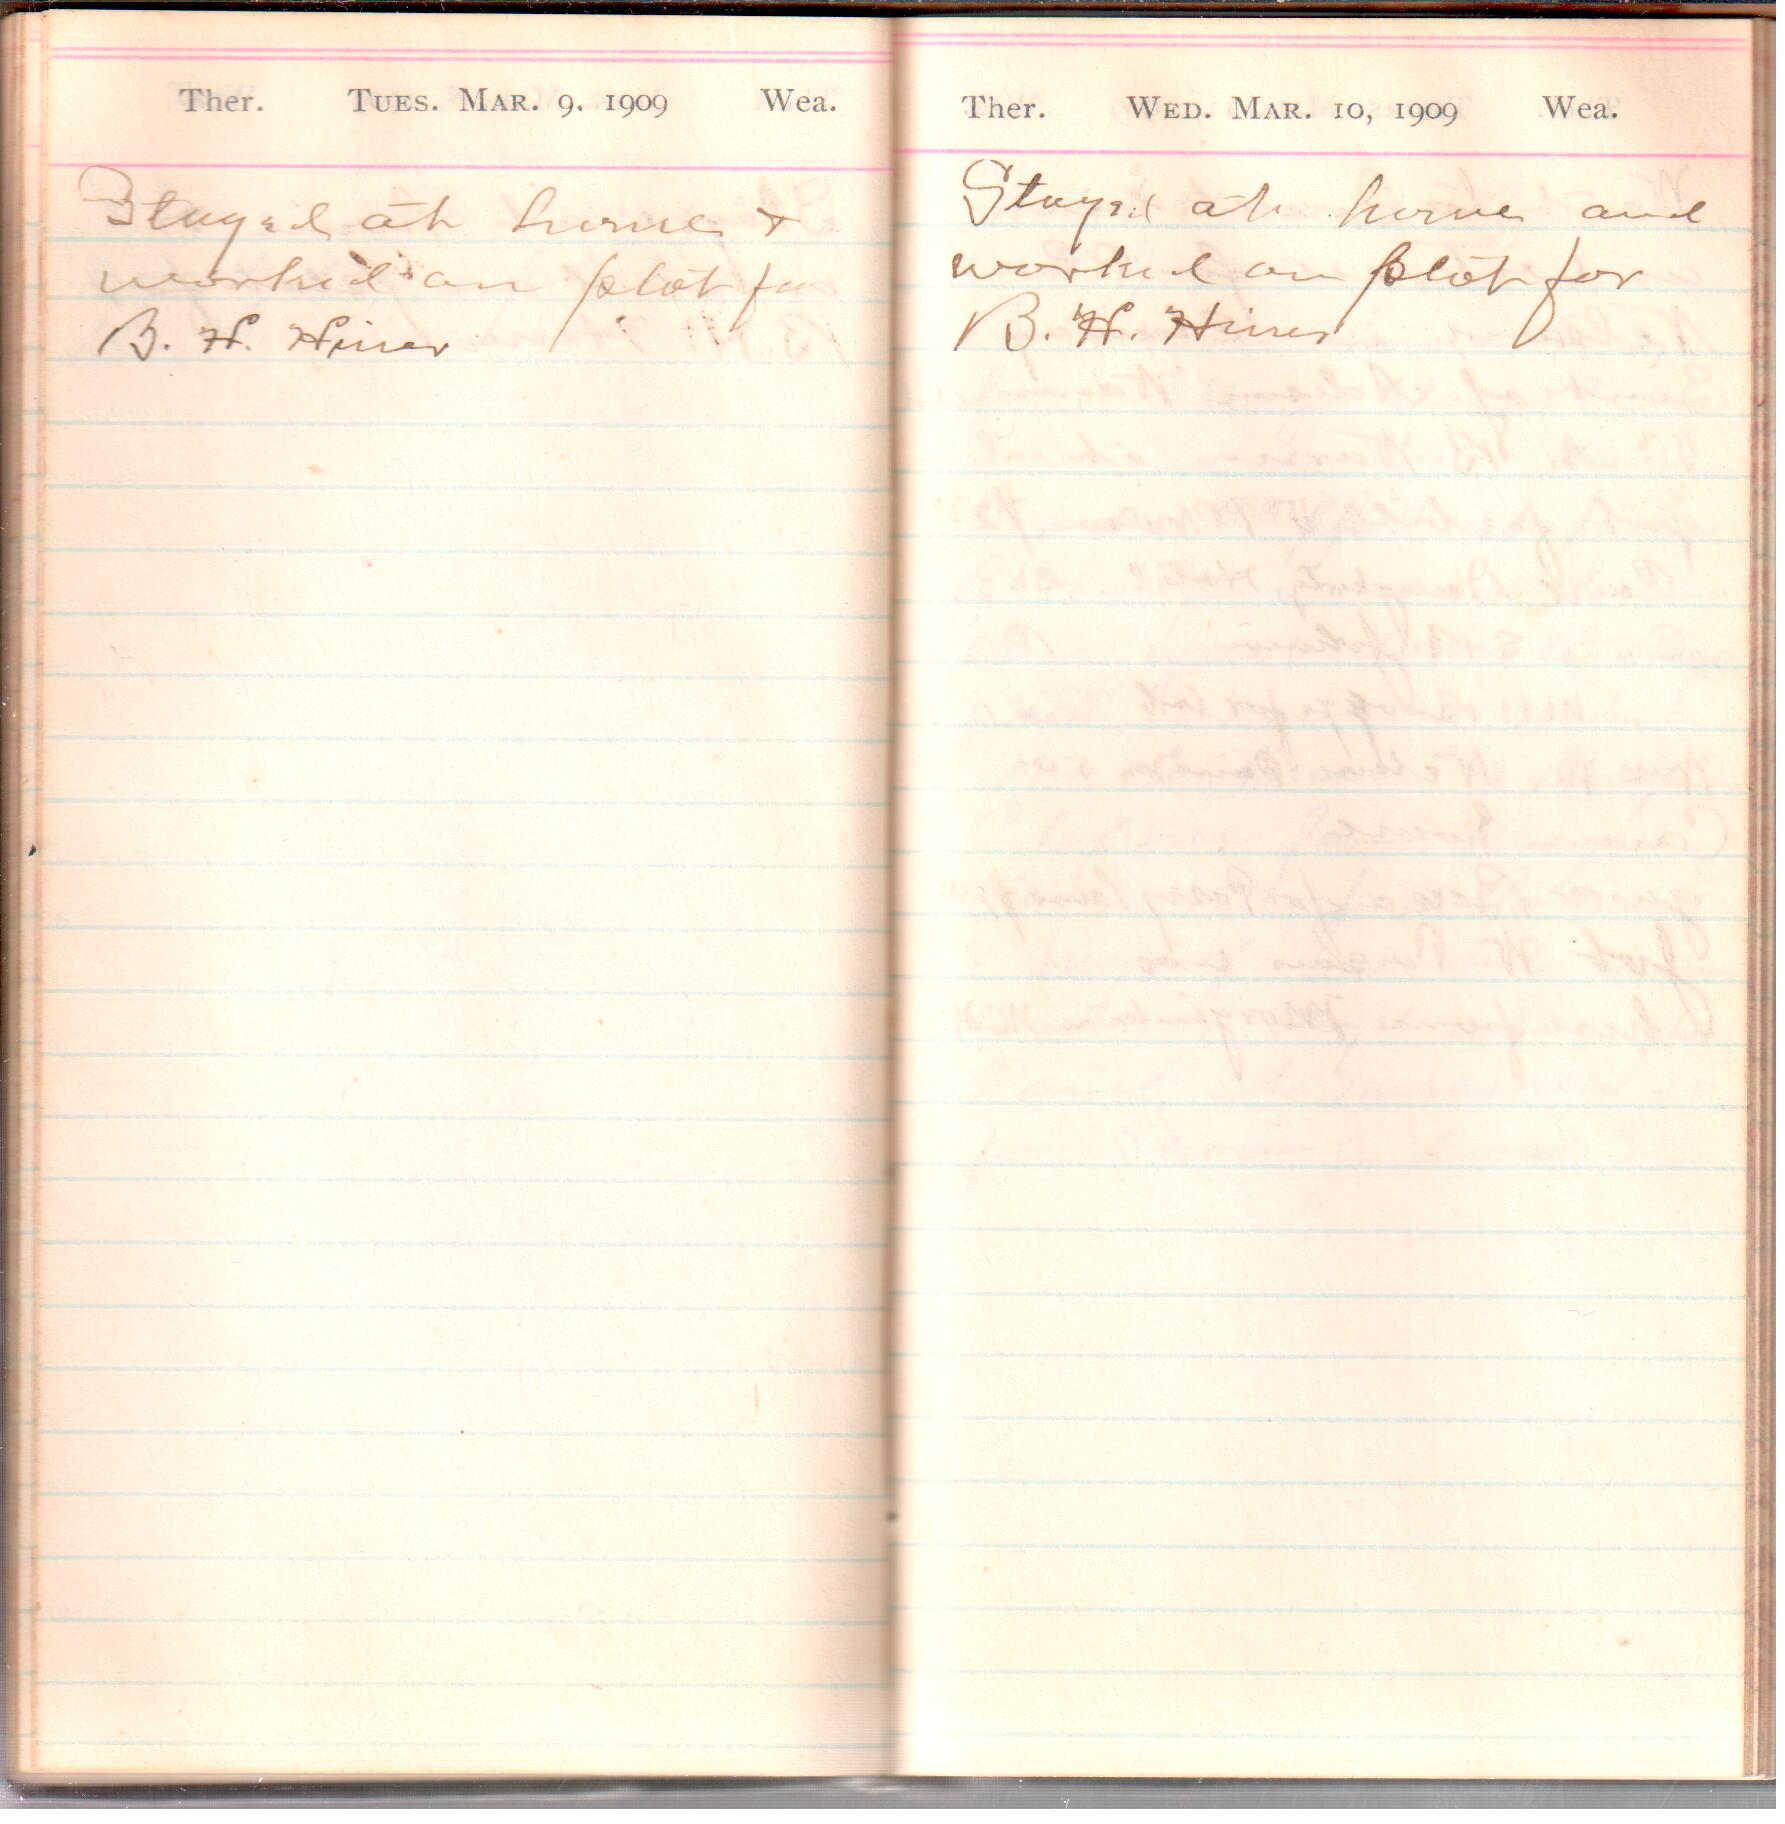 Ther. Tues. Mar. 9, 1909 Wea.
Stayed at home &
worked on plot for
B. H. Hiner
Ther. Wed. Mar. 10, 1909 Wea.
Stayed at home and
worked on plot for
B. H. Hiner